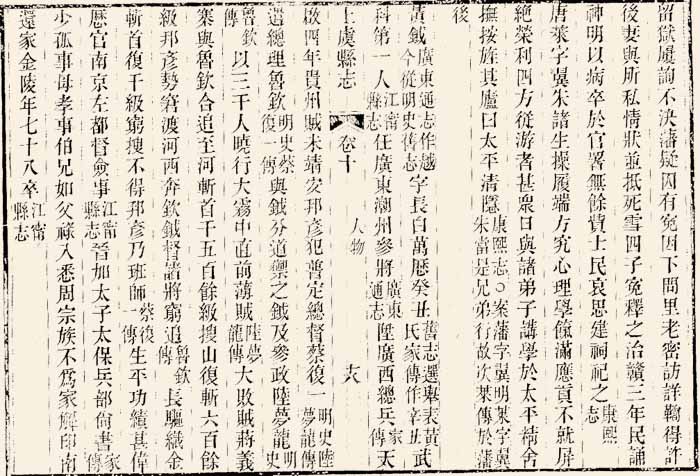 留獄屢詢不決藩疑囚有冤因下閭里老密訪詳鞫得許
後妻與所私情狀並抵死雪四子冤釋之治贛三年民誦
神明以病卒於官署無餘貲士民哀思建祠祀之康熙志
唐棻字翼朱諸生操履端方究心理學餼滿應貢不就屏
絕榮利四方從游者甚衆日與諸弟子講學於太平精舍
撫按旌其廬曰太平清隱康熙志○案藩字翼明棻字翼朱當是兄弟行故次棻傳於藩
後
黃鉞廣東通志作越今從明史舊志字長白萬厯癸丑舊志選舉表黃武氏家傳作辛丑
科第一人江甯縣志任廣東潮州參將廣東通志陞廣西總兵家傳天
上虞縣志 卷十 人物 十六
啟四年貴州賊未靖安邦彥犯普定總督蔡復一明史陸夢龍傳
遣總理魯欽明史蔡復一傳與鉞分道禦之鉞及參政陸夢龍明史
魯欽傳以三千人曉行大霧中直前薄賊陸夢龍傳大敗賊蔣義
寨與魯欽合追至河斬首千五百餘級搜山復斬六百餘
級邦彥勢窘渡河西奔欽鉞督諸將窮追魯欽傳長驅織金
斬首復千級窮搜不得邦彥乃班師蔡復一傳生平功績甚偉
厯官南京左都督僉事江甯縣志晉加太子太保兵部尙書家傳
少孤事母孝事伯兄如父祿入悉周宗族不爲家解印南
還家金陵年七十八卒江甯縣志